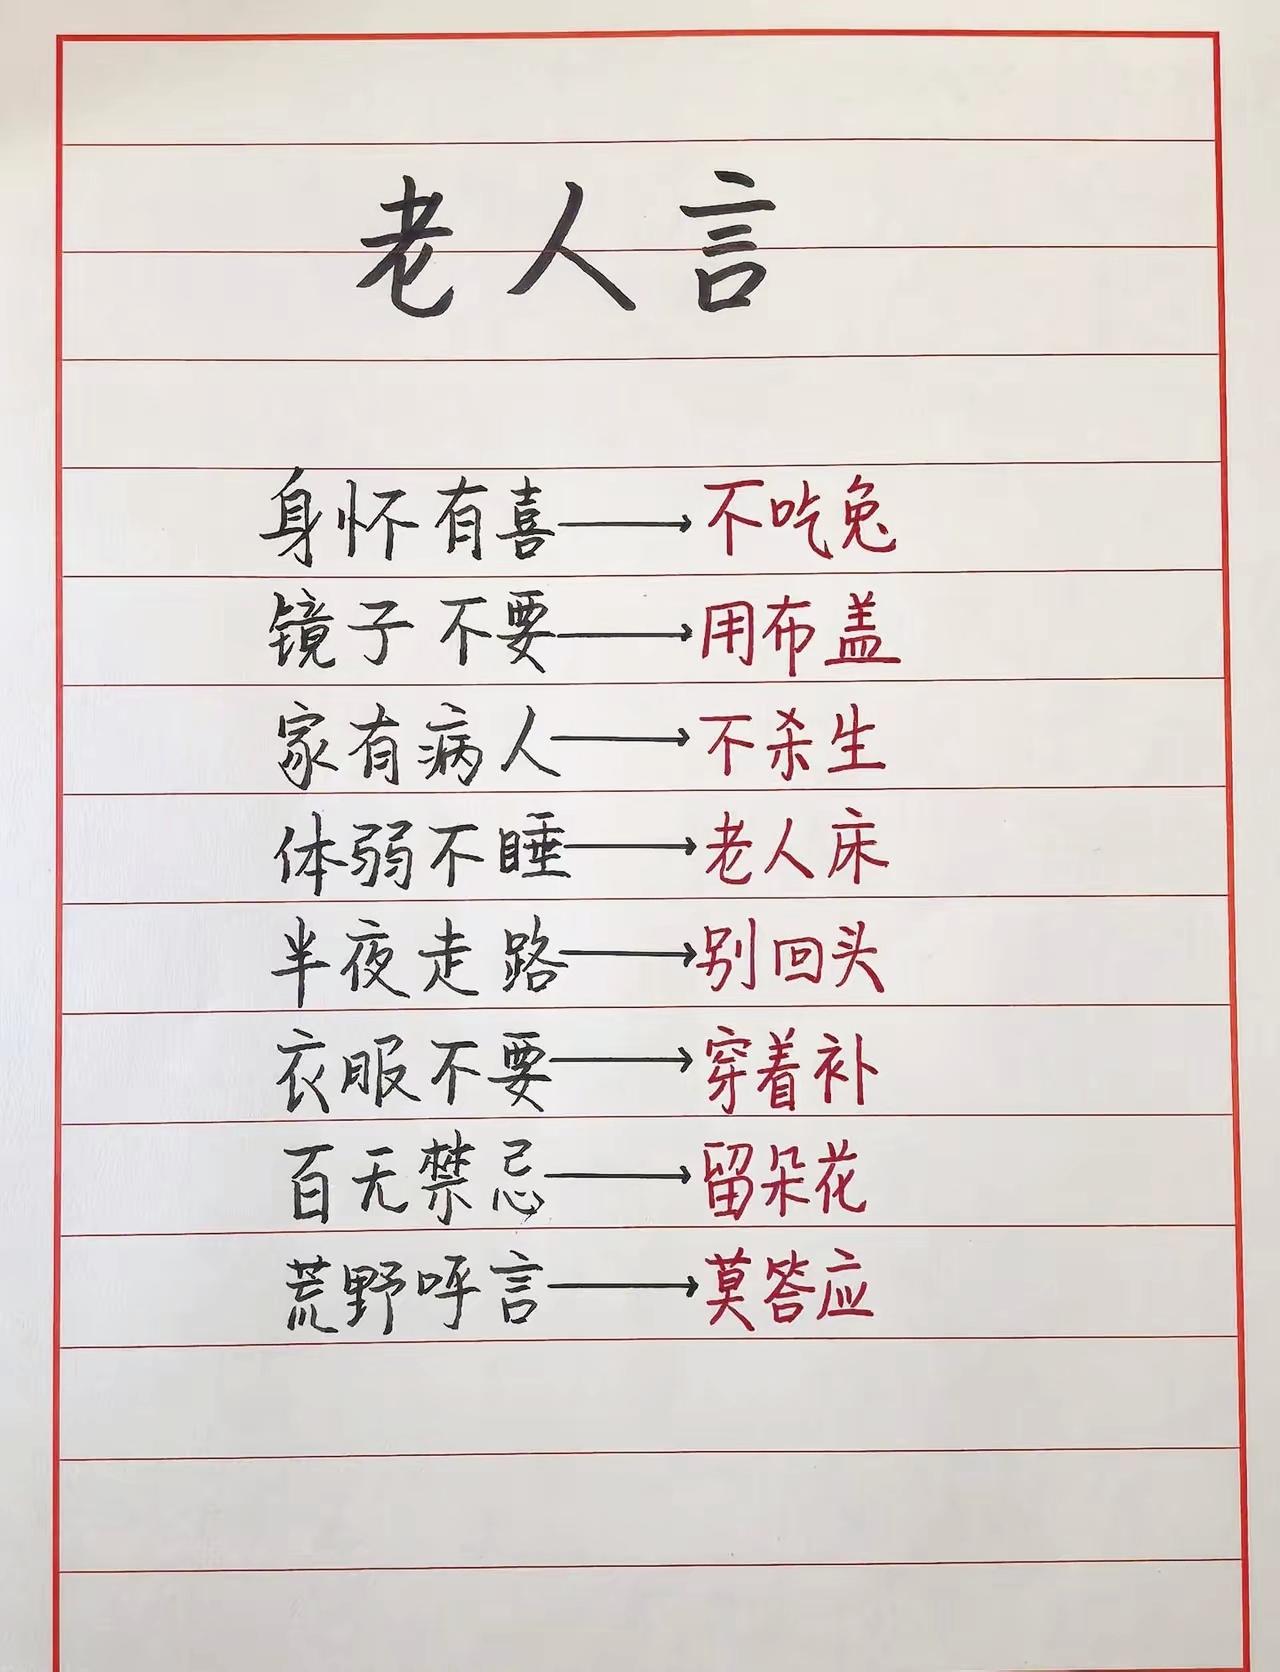 老人言
身怀有喜→不吃兔
镜子不要→用布盖
家有病人→不杀生
体弱不睡→老人床
半夜走路→别回头
衣服不要→穿着补
百无禁忌→留朵花
荒野呼言→莫答应